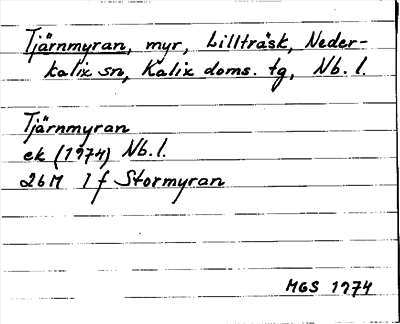 Tjärnmyran, myr, Lillträsk, Neder-
kalix sn, Kalix doms. tg, Nb. l.
Tjärnmyran
ek (1974) Nb. l.
26M 1 f Stormyran
MGS 1974